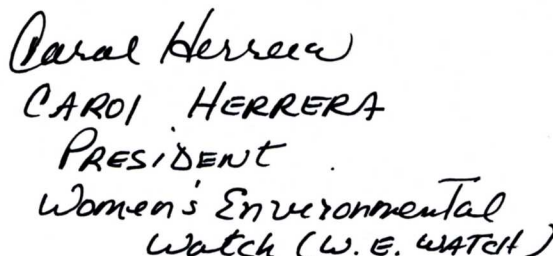 Carol Herrera
CAROL HERRERA
PRESIDENT
Women's Environmental
Watch (W.E. WATCH)